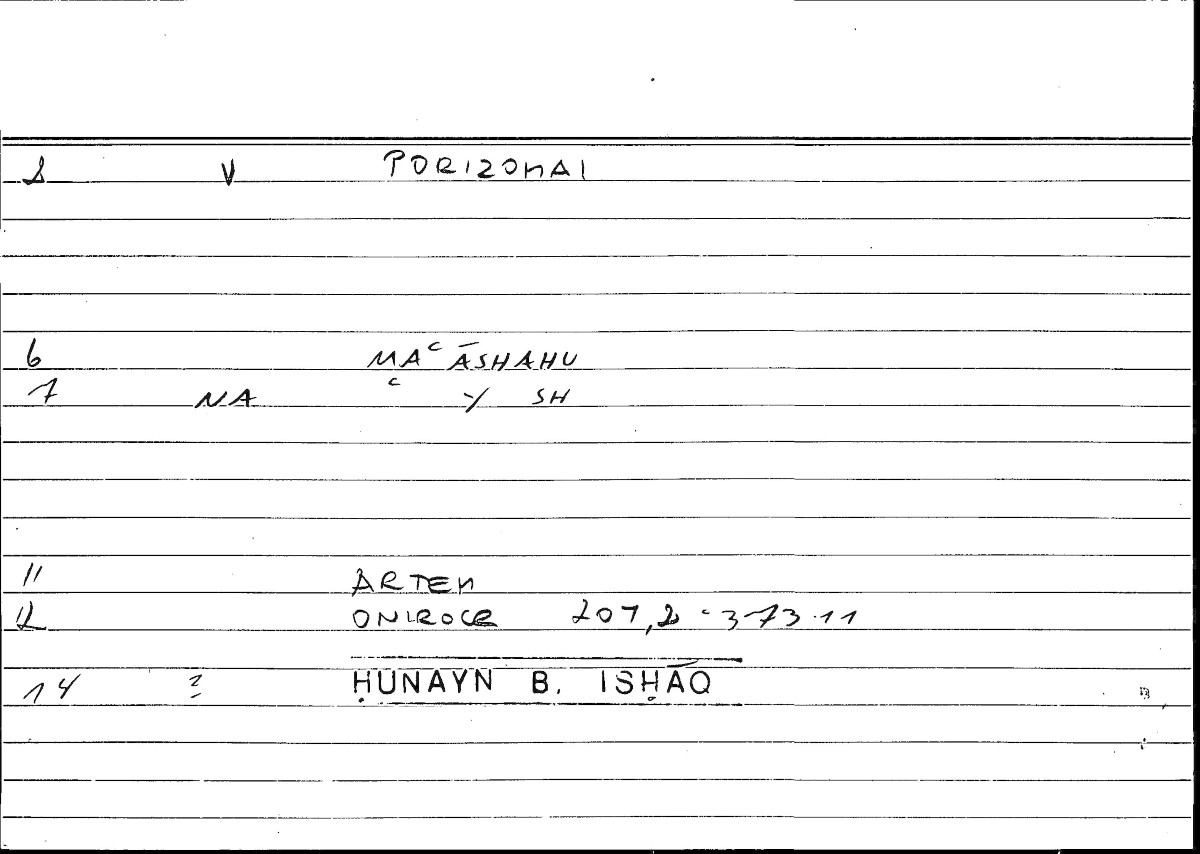 2 V PORIZOMAI
6 MAᶜĀSHAHU
7 NA ᶜ Y SH
11 ARTEM
12 ONIROCR 207,2 - 373.11
14 2 ḤUNAYN B. ISḤĀQ